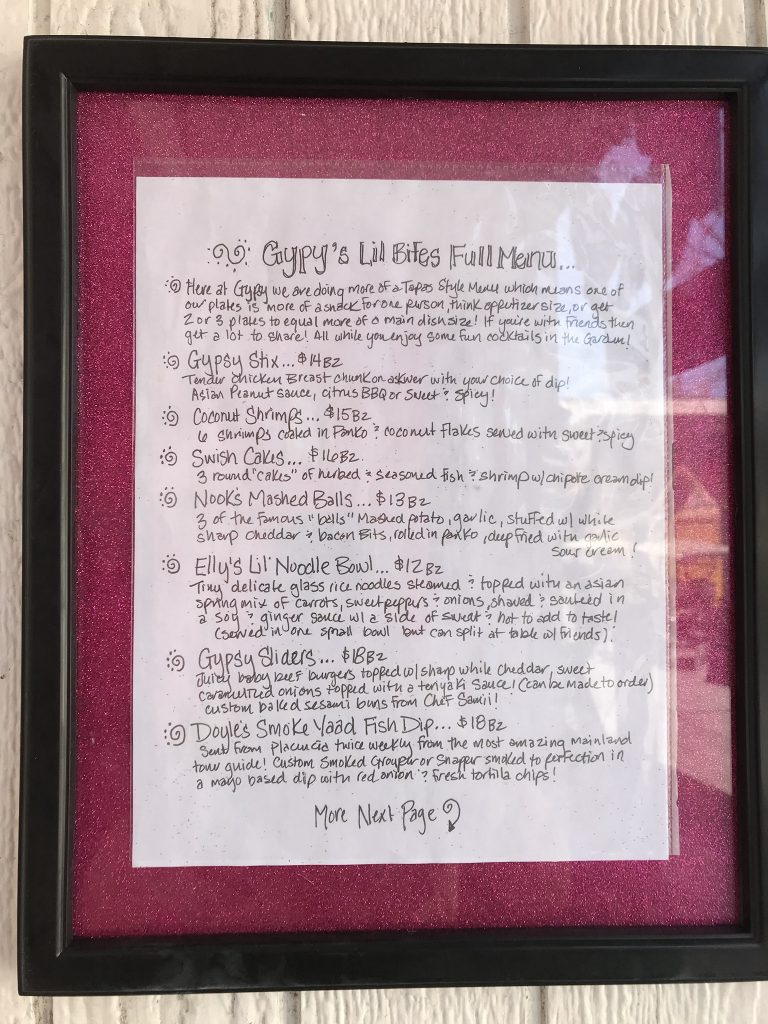 Gypy's Lil Bites Full Menu...
Here at Gypy we are doing more of a Tapas Style Menu which means one of
our plates is more of a snack for one person, think appetizer size, or get
2 or 3 plates to equal more of a main dish size! If you're with friends then
get a lot to share! All while you enjoy some fun cocktails in the Garden!
Gypsy Stix... $14 BZ
Tender chicken Breast chunk on a skiwer with your choice of dip!
Asian Peanut sauce, citrus BBQ or Sweet & Spicy!
Coconut Shrimps... $15 BZ
6 shrimps coated in Panko & coconut flakes served with sweet & spicy
Swish Cakes... $16 BZ
3 round "cakes" of herbed & seasoned fish & shrimp w/ chipotle cream dip!
Nook's Mashed Balls... $13 BZ
3 of the famous "balls" Mashed potato, garlic, stuffed w/ white
sharp cheddar & bacon bits, rolled in panko, deep fried with garlic
sour cream!
Elly's Lil' Noodle Bowl... $12 BZ
Tiny delicate glass rice noodles steamed & topped with an asian
spring mix of carrots, sweet peppers & onions, shaved & sauteed in
a soy & ginger sauce w/ a side of sweat & hot to add to taste!
(served in one small bowl but can split at table w/ friends).
Gypsy Sliders... $18 BZ
Juicy baby beef burgers topped w/ sharp white cheddar, sweet
caramelized onions topped with a teriyaki sauce! (can be made to order)
custom baked sesami buns from Chef Samii!
Doyle's Smoke Yaad Fish Dip... $18 BZ
Sent from Placencia twice weekly from the most amazing Mainland
tour guide! Custom Smoked Grouper or Snaper smoked to perfection in
a mayo based dip with red onion & fresh tortila chips!
More Next Page